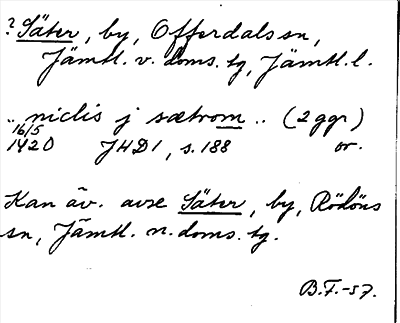 ? Säter, by, Offerdals sn,
Jämtl. v. doms. tg, Jämtl. l.
.. niclis j sætrom .. (2 ggr)
16/5
1420 JHD 1, s. 188 or.
Kan äv. avse Säter, by, Rödöns
sn, Jämtl. n. doms. tg.
B.F.-57.